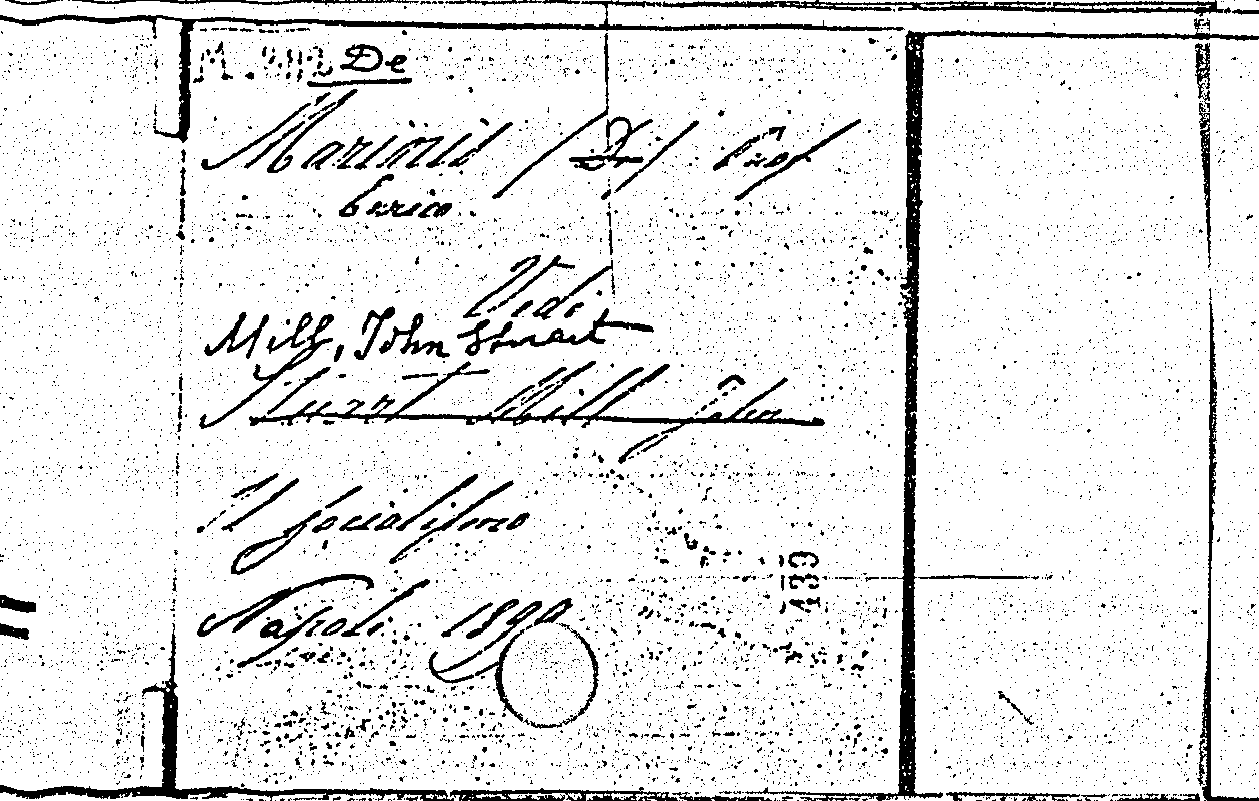 De
Marinis /De/ Prof
Enrico
Vedi
Mill, John Stuart
Stuart Mill John
Il socialismo
Napoli 1899